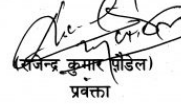 (राजेन्द्र कुमार पौडेल)
प्रवक्ता